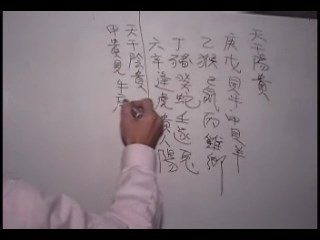 天干陽貴
庚戊見牛甲見羊
乙猴己鼠丙雞鄉
丁豬癸蛇壬逐兔
六辛逢虎貴人陽
天干陰貴
甲貴見牛